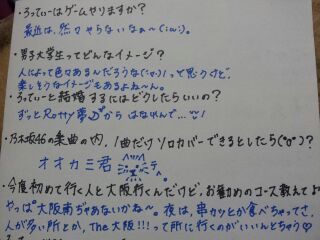 ・ろってぃーはゲームやりますか?
最近は、然々やらないなぁ〜(;ω;)。
・男子大学生ってどんなイメージ?
人によって色々あるんだろうな(･ω･)って思うけど、
楽しそうなイメージもあるよね〜ん。
・ろってぃーと結婚するにはどうしたらいいの?
ずっとRotty夢中からはなれんで...♡!
・乃木坂46の楽曲の内、1曲だけソロカバーできるとしたら(°o°)?
オオカミ君
・今度初めて行く人と大阪行くんだけど、お勧めのコース教えて
やっぱ大阪南ぢゃあないかね〜。夜は、串カツとか食べちゃってさ、
人が多い所とか、The大阪!!!って所に行くのがいいんとちゃう♡